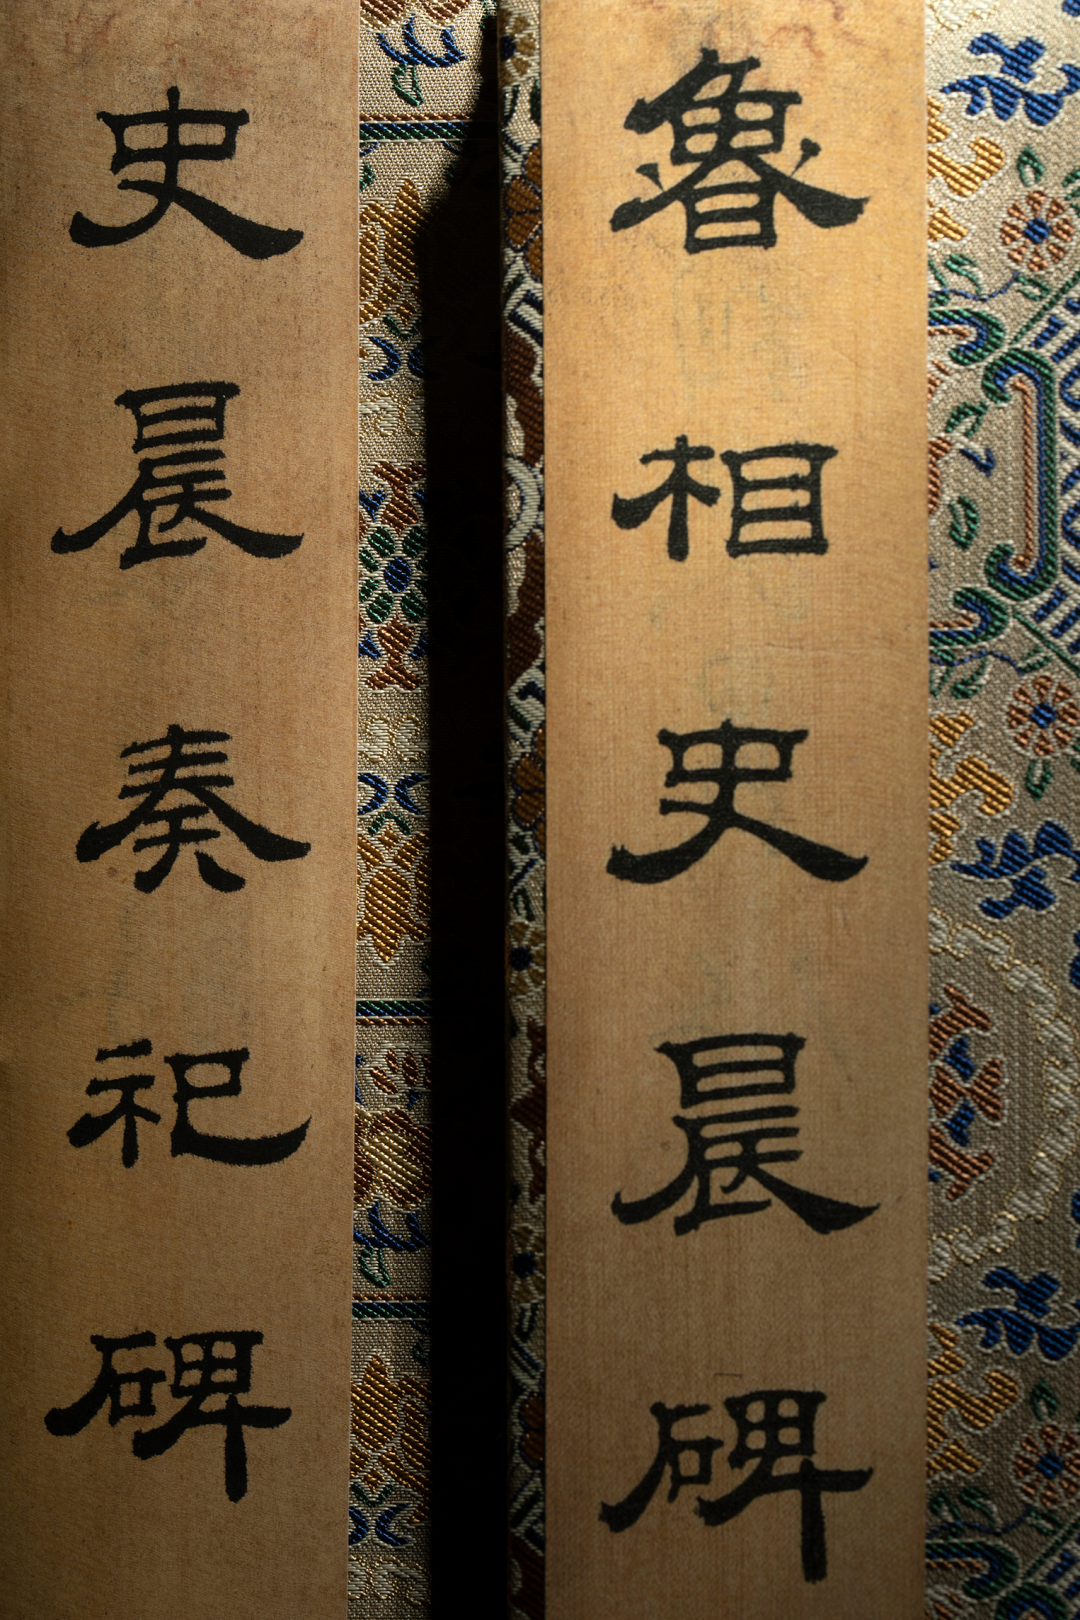 魯相史晨碑
史晨奏祀碑